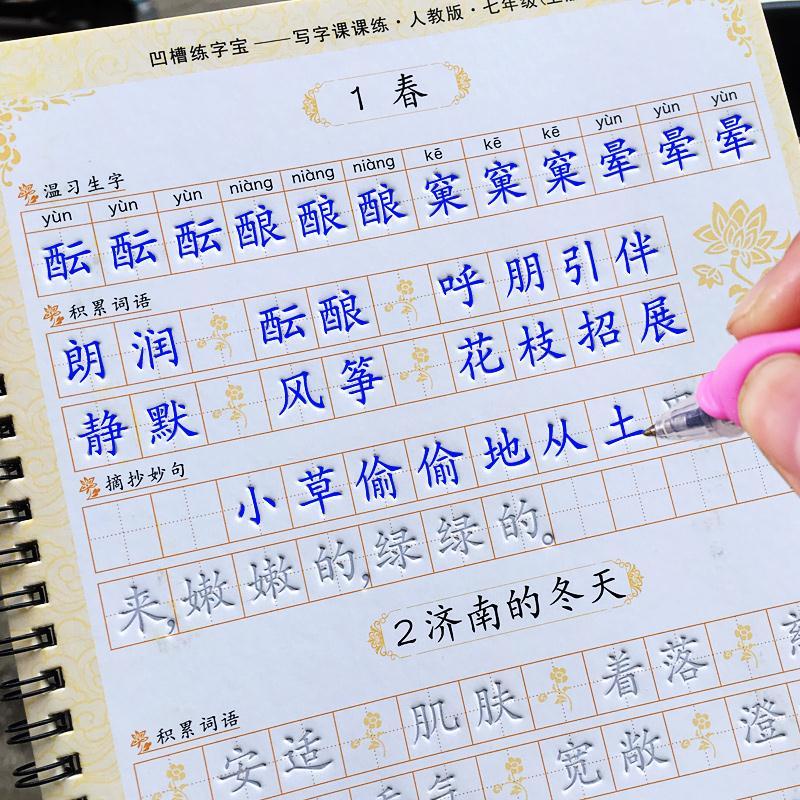 凹槽练字宝——写字课课练·人教版·七年级(上
1 春
温习生字
yùn yùn yùn niàng niàng niàng kē kē kē yùn yùn yùn
酝酝酝酿酿酿窠窠窠晕晕晕
积累词语
朗润 酝酿 呼朋引伴
静默 风筝 花枝招展
摘抄妙句
小草偷偷地从土
来,嫩嫩的,绿绿的。
2 济南的冬天
积累词语
安适 肌肤 着落
宽敞 澄